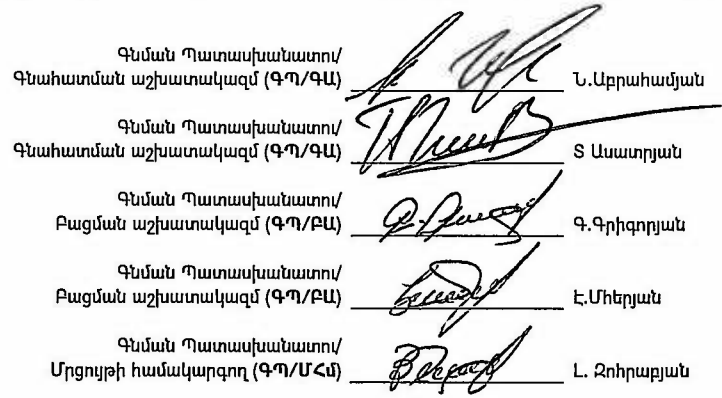 Գնման Պատասխանատու/
Գնահատման աշխատակազմ (ԳՊ/ԳԱ) Ն.Աբրահամյան
Գնման Պատասխանատու/
Գնահատման աշխատակազմ (ԳՊ/ԳԱ) Տ Ասատրյան
Գնման Պատասխանատու/
Բացման աշխատակազմ (ԳՊ/ԲԱ) Գ.Գրիգորյան
Գնման Պատասխանատու/
Բացման աշխատակազմ (ԳՊ/ԲԱ) Է.Մհերյան
Գնման Պատասխանատու/
Մրցույթի համակարգող (ԳՊ/ՄՀմ) Լ. Զոհրաբյան